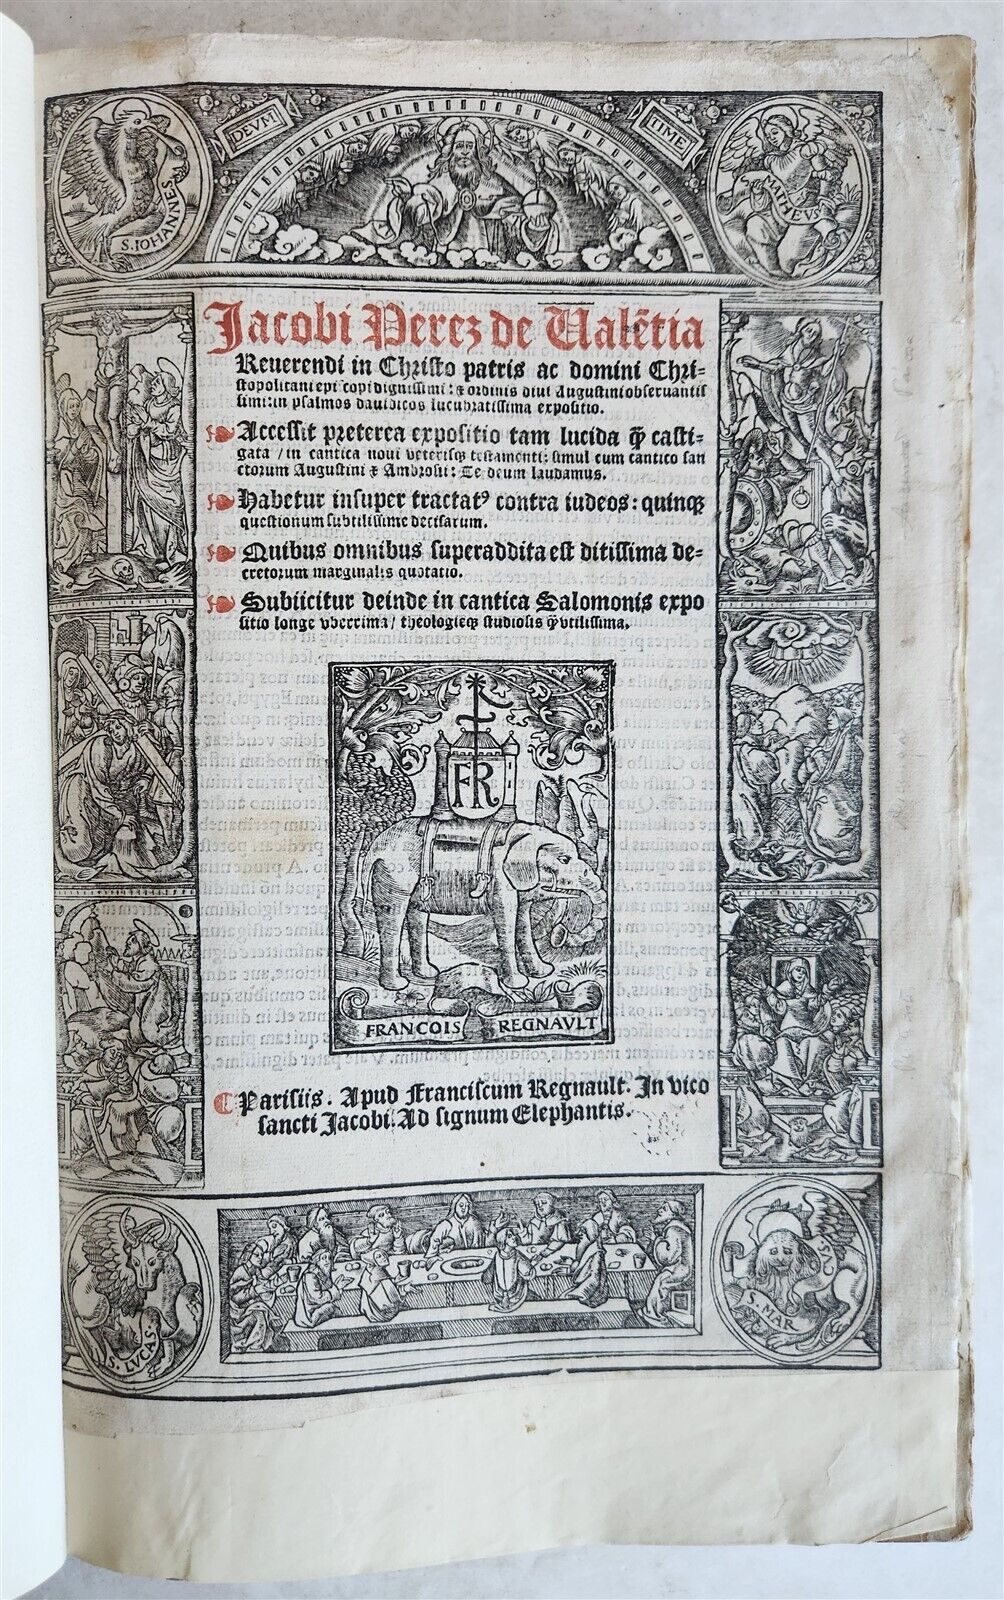 DEVM
TIME
S. IOHANNES
MATHEVS
Jacobi Perez de Ualẽtia
Reuerendi in Christo patris ac domini Chri-
stopolitani epi copi dignissimi: & ordinis diui Augustini obseruantis
simi: in psalmos dauidicos lucubratissima expositio.
Accessit preterea expositio tam lucida q̃ casti-
gata / in cantica noui veterisq; testamenti: simul cum cantico san
ctorum Augustini & Ambrosii: Te deum laudamus.
Habetur insuper tractatꝰ contra iudeos: quinq;
questionum subtilissime decisarum.
Quibus omnibus superaddita est ditissima de-
cretorum marginalis quotatio.
Subiicitur deinde in cantica Salomonis expo
sitio longe vberrima / theologieq; studiosis q̃vtilissima.
FR
FRANCOIS REGNAVLT
Parisiis. Apud Franciscum Regnault. In vico
sancti Jacobi: Ad signum Elephantis.
S. LVCAS
S. MARCVS